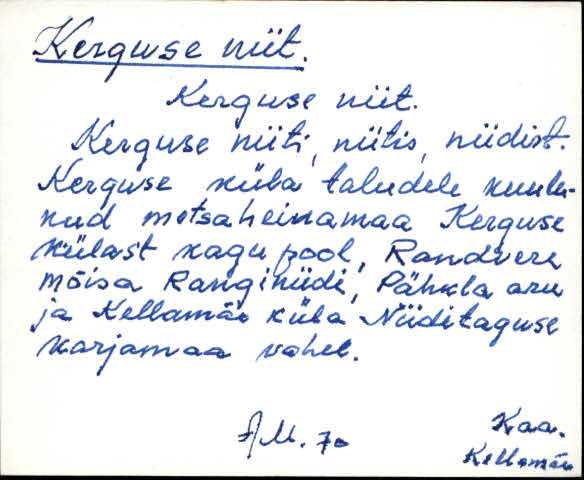 Kerguse niit.
Kerguse niit.
Kerguse niiti, niitis, niidist.
Kerguse küla taludele kuulu-
nud metsaheinamaa Kerguse
külast kagu pool, Randvere
mõisa Ranginiidi, Pähkla aru
ja Kellamäe küla Niiditaguse
karjamaa vahel.
A.M. 70
Kaa.
Kellamäe